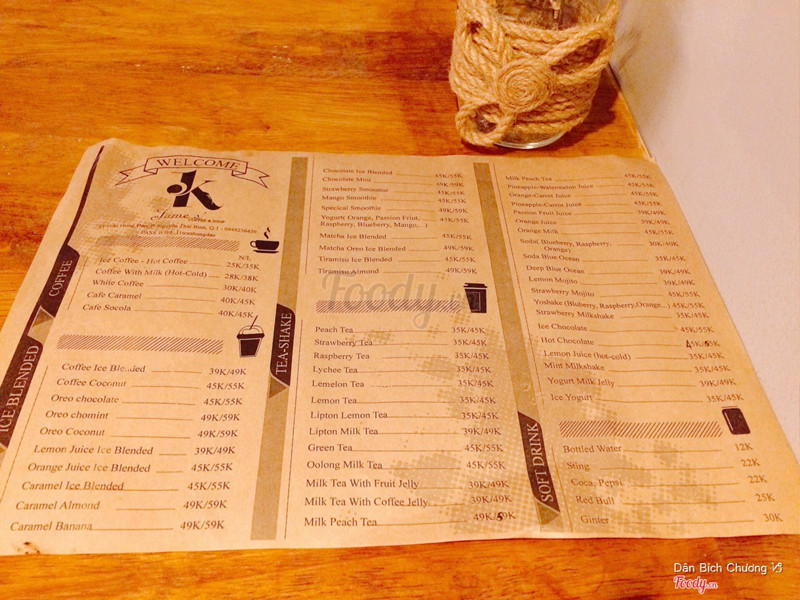 WELCOME
JK
James
COFFEE & SHOP
COFFEE
N/L
Ice Coffee - Hot Coffee 25K/35K
Coffee With Milk (Hot-Cold) 28K/38K
White Coffee 30K/40K
Cafe Caramel 40K/45K
Cafe Socola 40K/45K
ICE BLENDED
Coffee Ice Blended 39K/49K
Coffee Coconut 45K/55K
Oreo chocolate 45K/55K
Oreo chomint 49K/59K
Oreo Coconut 49K/59K
Lemon Juice Ice Blended 39K/49K
Orange Juice Ice Blended 45K/55K
Caramel Ice Blended 45K/55K
Caramel Almond 49K/59K
Caramel Banana 49K/59K
Chocolate Ice Blended 45K/55K
Chocolate Mint 49K/59K
Strawberry Smoothie 45K/55K
Mango Smoothie 45K/55K
Specical Smoothie 49K/59K
Yogurt( Orange, Passion Friut, 45K/55K
Raspberry, Blueberry, Mango,...)
Matcha Ice Blended 45K/55K
Matcha Oreo Ice Blended 49K/59K
Tiramisu Ice Blended 45K/55K
Tiramisu Almond 49K/59K
TEA-SHAKE
Peach Tea 35K/45K
Strawberry Tea 35K/45K
Raspberry Tea 35K/45K
Lychee Tea 35K/45K
Lemelon Tea 35K/45K
Lemon Tea 35K/45K
Lipton Lemon Tea 35K/45K
Lipton Milk Tea 39K/49K
Green Tea 45K/55K
Oolong Milk Tea 45K/55K
Milk Tea With Fruit Jelly 39K/49K
Milk Tea With Coffee Jelly 39K/49K
Milk Peach Tea 49K/59K
Milk Peach Tea 45K/55K
Pineapple-Watermelon Juice 45K/55K
Orange-Carrot Juice 45K/55K
Pineapple-Carrot Juice 45K/55K
Passion Fruit Juice 39K/49K
Orange Juice 39K/49K
Orange Milk 45K/55K
Soda( Blueberry, Raspberry, 30K/40K
Orange)
Soda Blue Ocean 35K/45K
Deep Blue Ocean 39K/49K
Lemon Mojito 39K/49K
Strawberry Mojito 45K/55K
Yoshake (Bluberry, Raspberry,Orange...) 45K/55K
Strawberry Milkshake 35K/45K
Ice Chocolate 45K/55K
Hot Chocolate
Lemon Juice (hot-cold) 35K/45K
Mint Milkshake 35K/45K
Yogurt Milk Jelly 39K/49K
Ice Yogurt 35K/45K
SOFT DRINK
Bottled Water 12K
Sting 22K
Coca, Pepsi 22K
Red Bull 25K
Ginter 30K
Foody.vn
Dân Bich Chương
Foody.vn